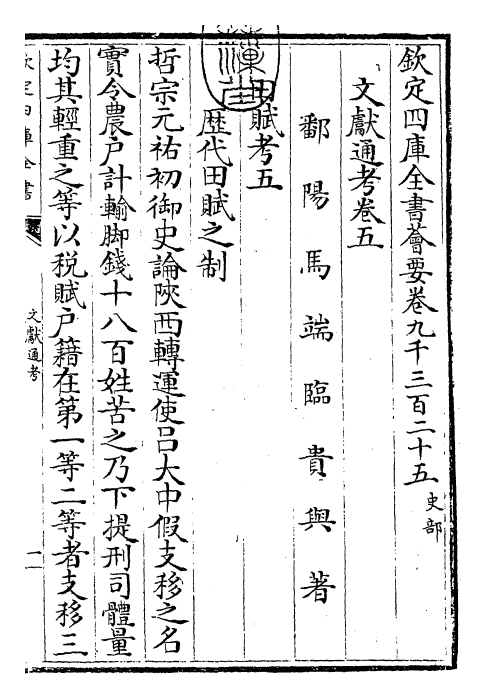 欽定四庫全書薈要卷九千三百二十五 史部
文獻通考卷五
鄱陽馬端臨貴與著
田賦考五
歷代田賦之制
哲宗元祐初御史論陝西轉運使呂大中假支移之名
實令農户計輸脚錢十八百姓苦之乃下提刑司體量
均其輕重之等以税賦户籍在第一等二等者支移三
欽定四庫全書
文獻通考
一